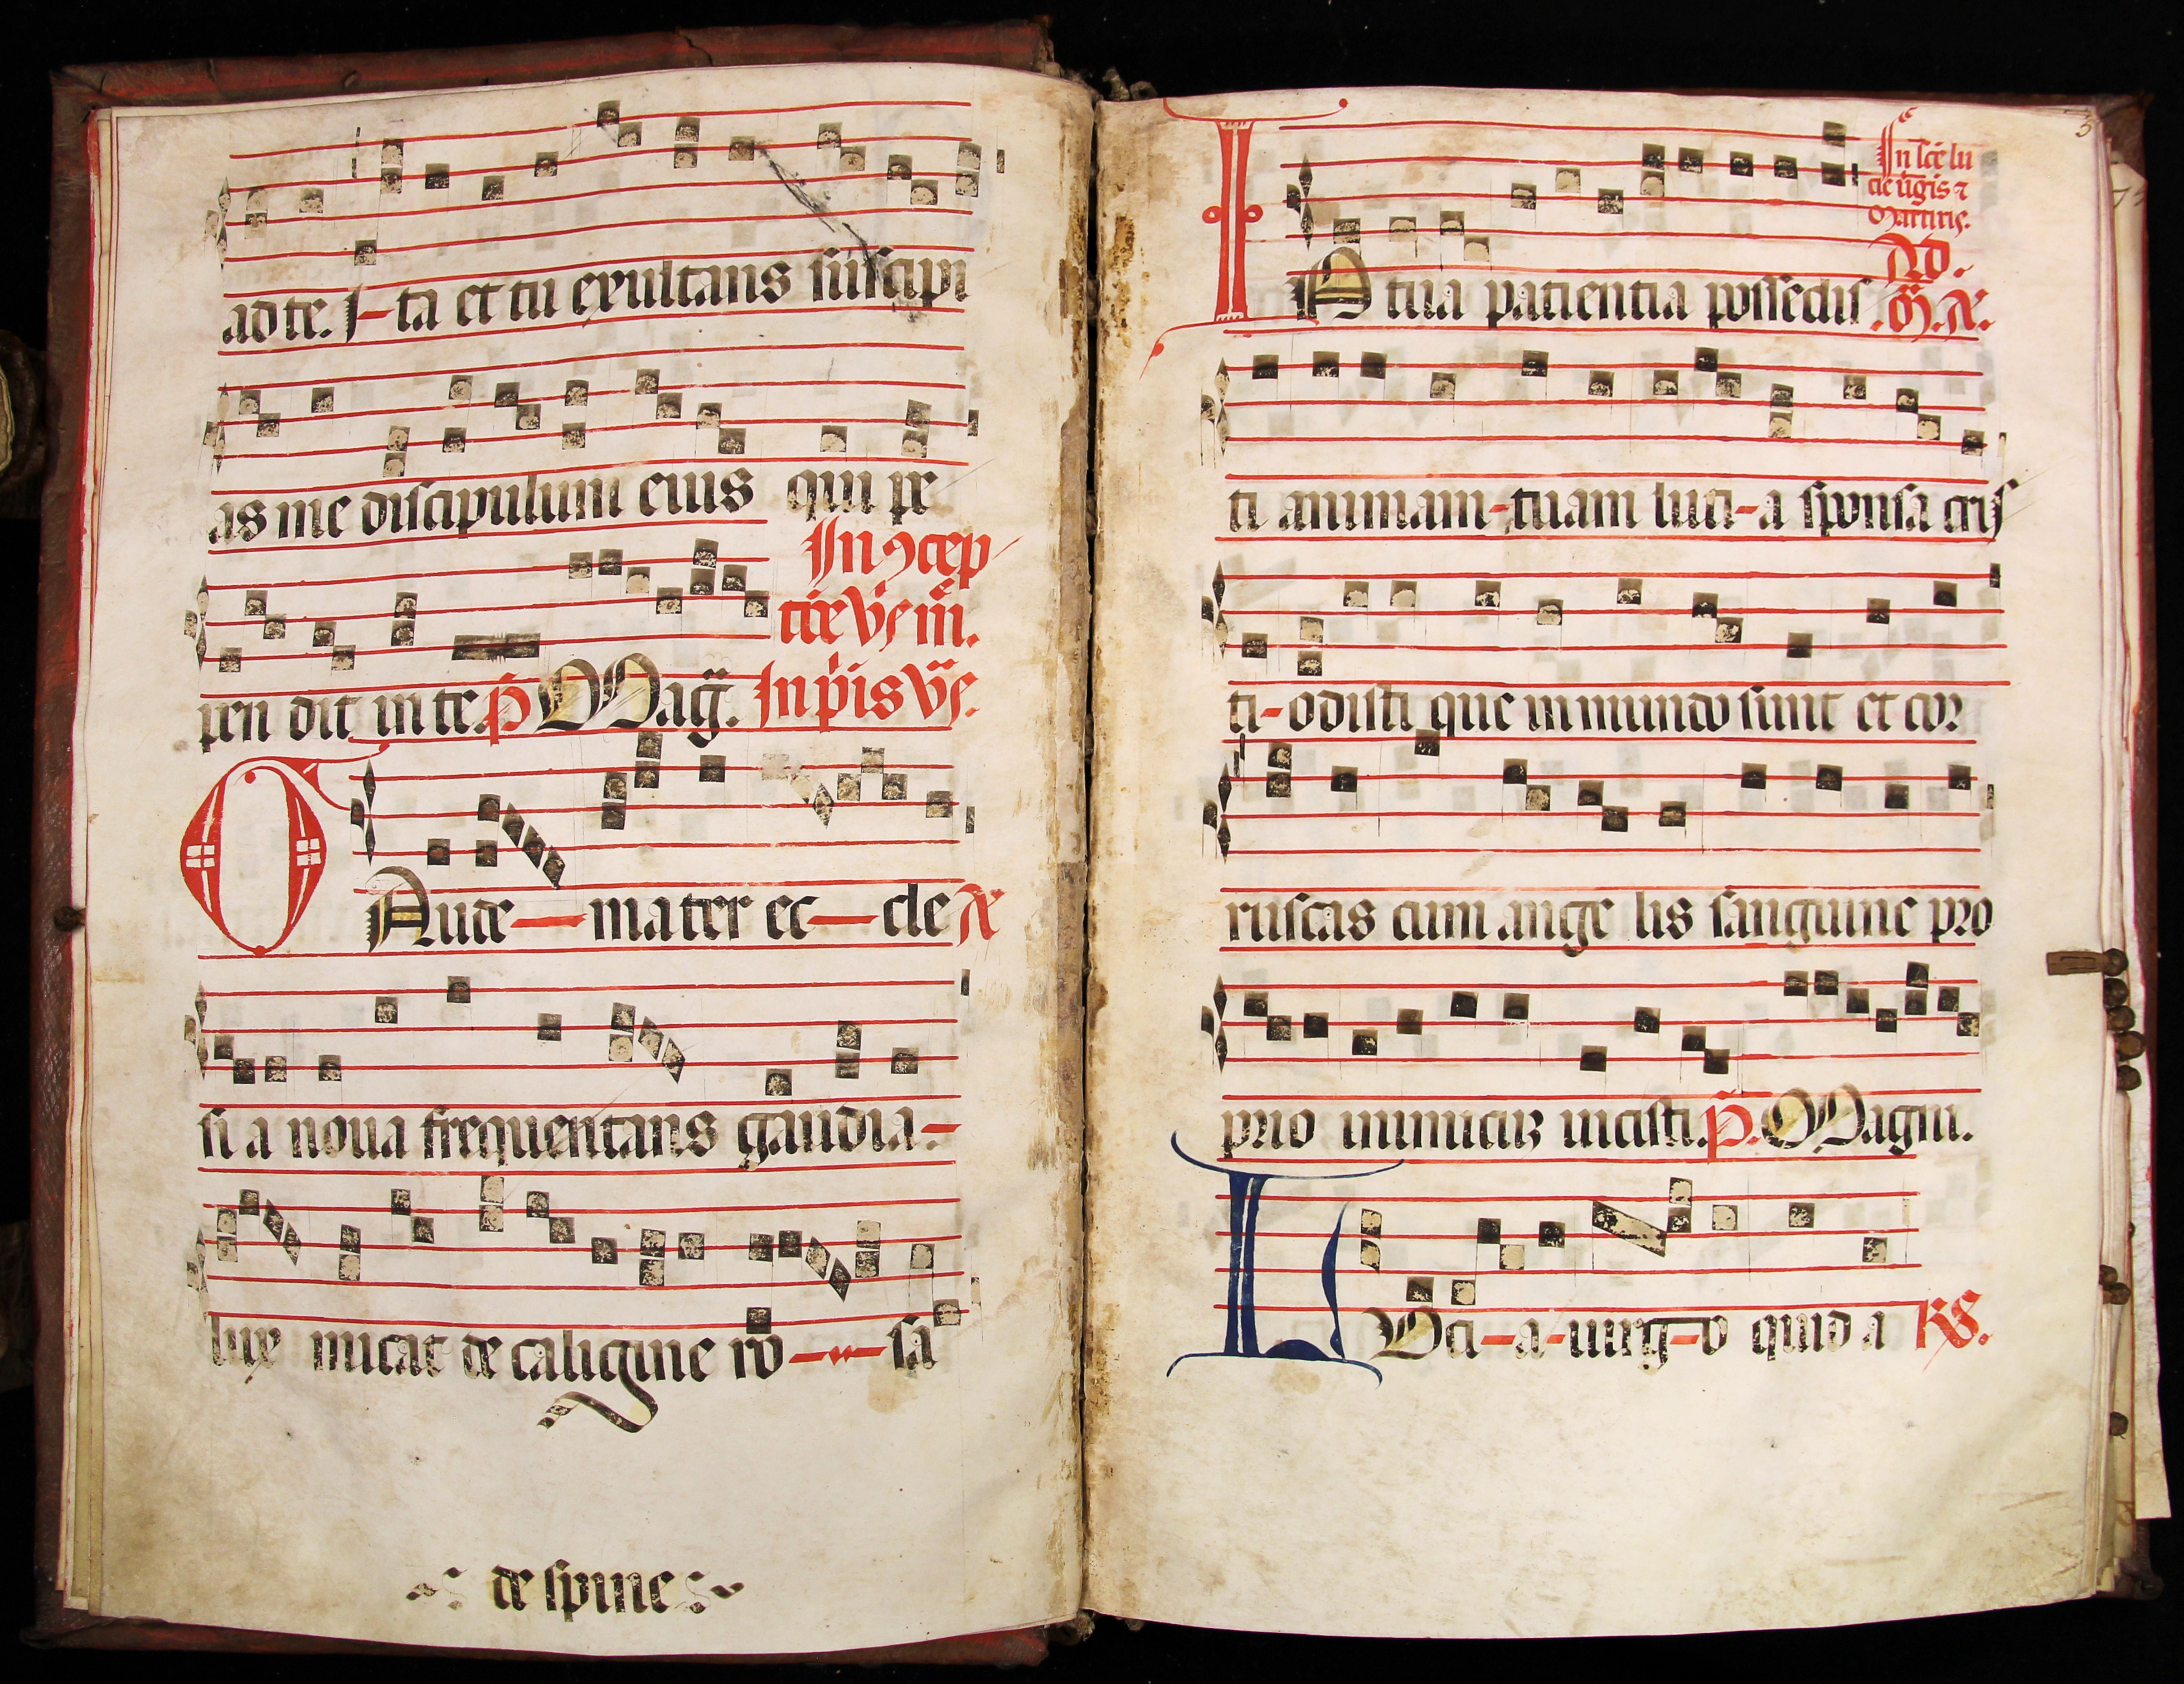 ad te. I-ta et tu exultans suscipi
as me discipulum eius qui pe
In ꝯcep
tiōe
pen dit in te. P̄ Mag̃. In p̃is
O Aude — mater ec — cle Æ
si a noua frequentans gaudia -
lux micat de caligine ro — sa
de spine
5
In scē lu
cie ũgis ⁊
Martiris.
Ad.
I N tua patientia possedis .M̃. Æ.
ti animam - tuam luci - a sponsa cris
ti - odisti que in mundo sunt et cor
ruscas cum ange lis sanguine pro
prio inimicum uicisti. P̄. Magni.
L Uci - a - uirg - o quid a